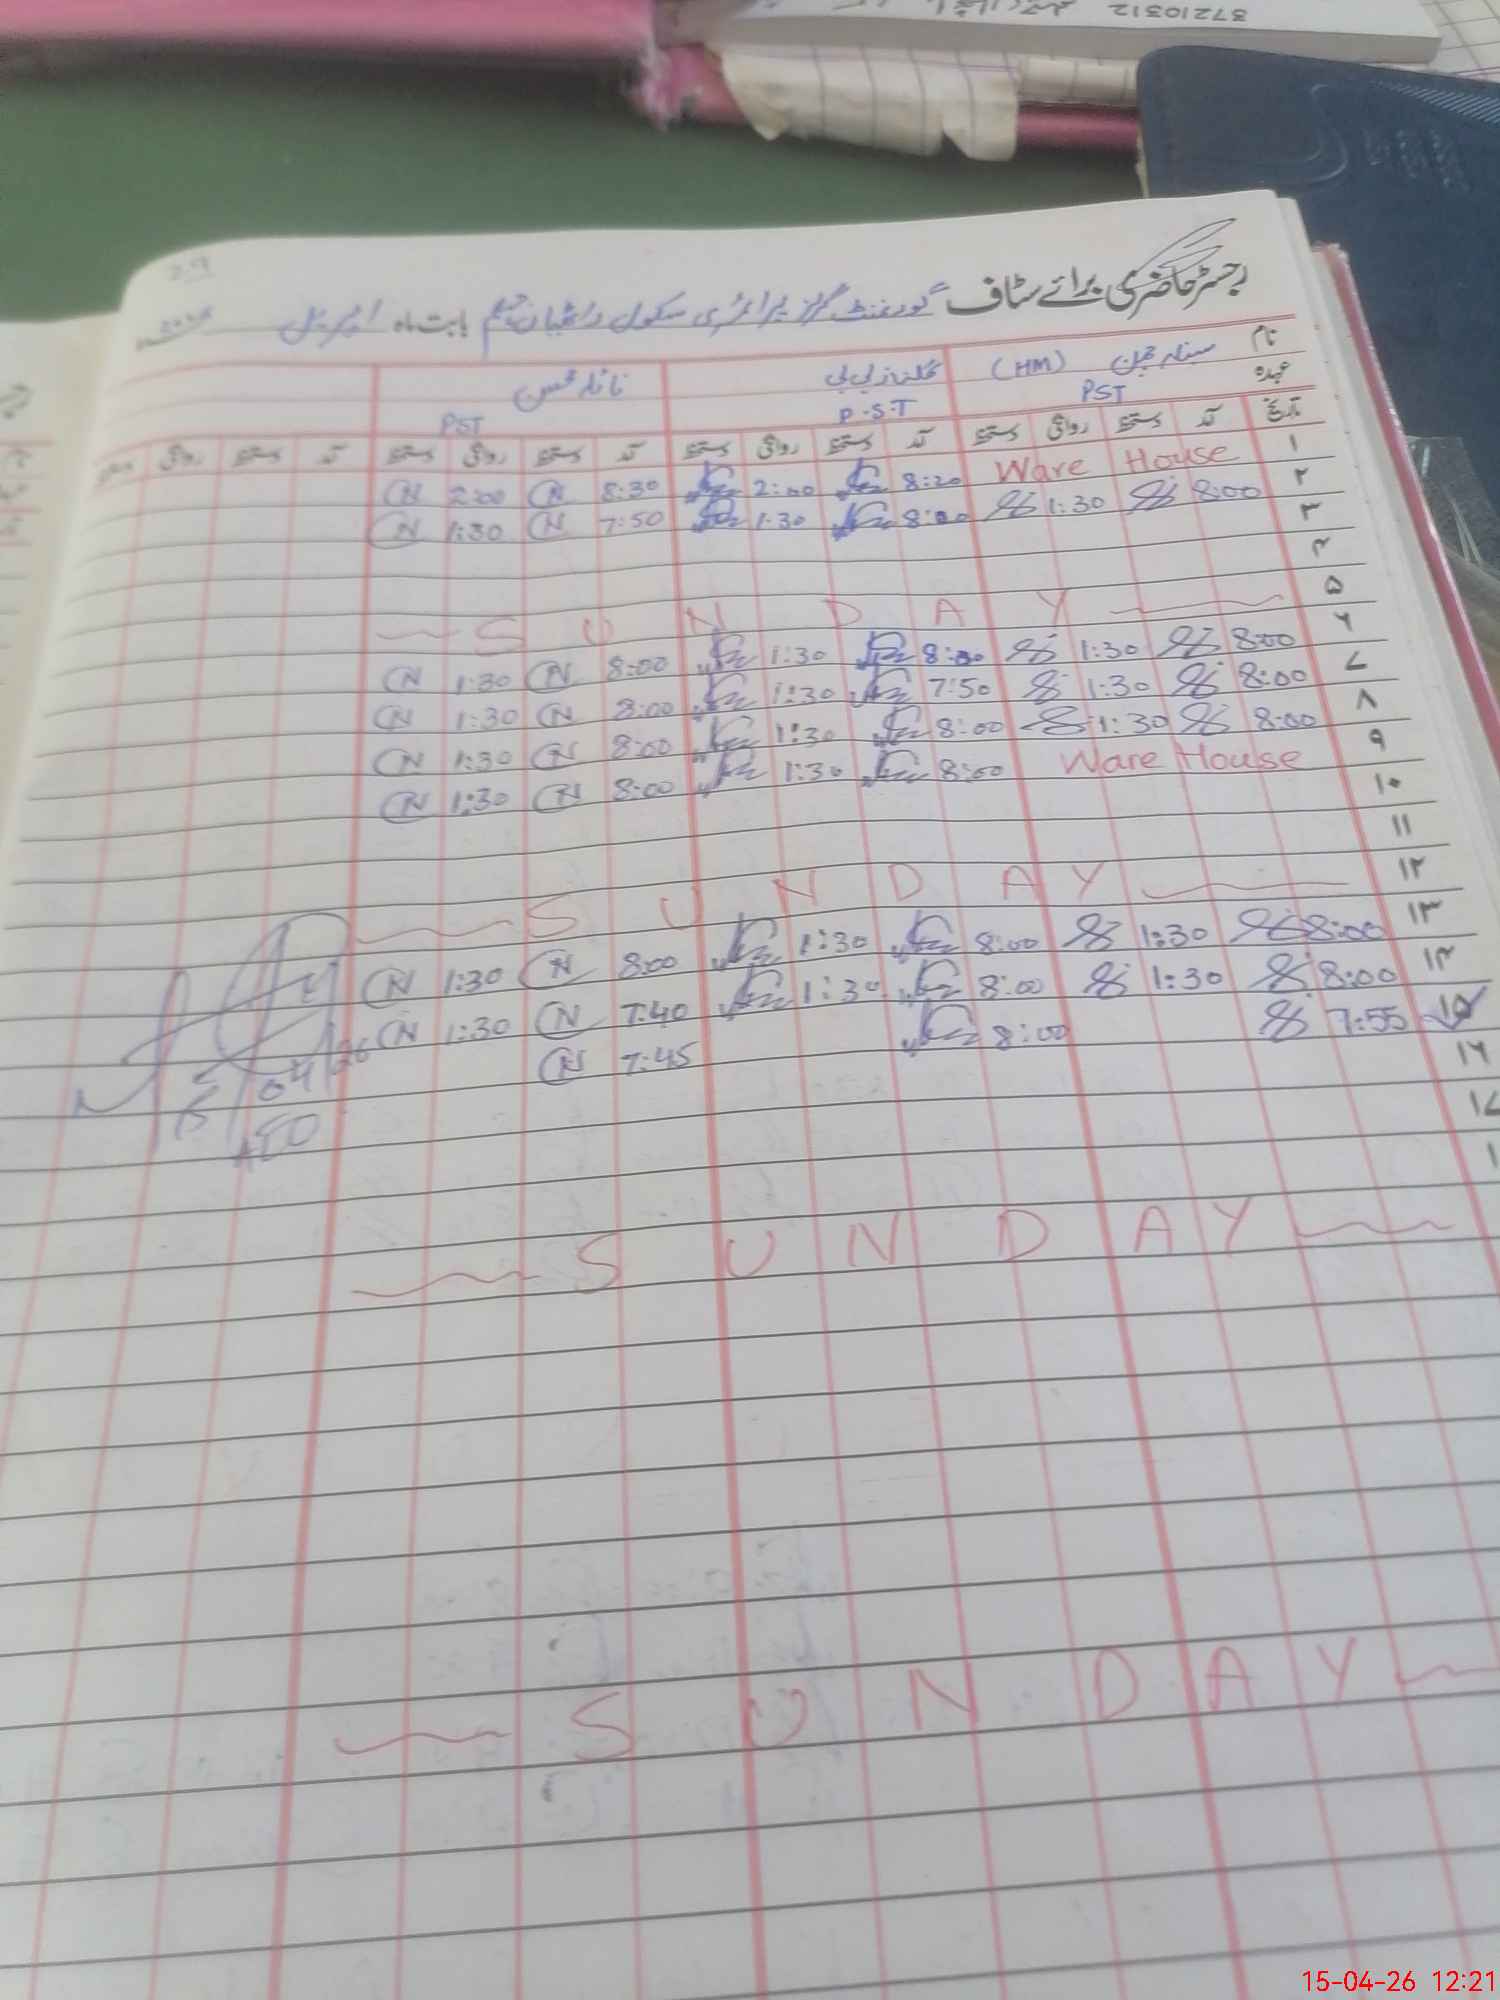 37210312
29
رجسٹر حاضری برائے سٹاف گورنمنٹ گرلز پرائمری سکول بابت ماہ اپریل
نام (HM) گلناز بی بی نائلہ محسن
عہدہ PST P.S.T PST
تاریخ آمد دستخط روانگی دستخط آمد دستخط روانگی دستخط آمد دستخط روانگی دستخط آمد دستخط روانگی
۱ Ware House 8:20 2:00 8:30 N 2:00 N
۲ 8:00 1:30 8:00 1:30 7:50 N 1:30 N
۳
۴
۵ SUNDAY
۶ 8:00 1:30 8:00 1:30 8:00 N 1:30 N
۷ 8:00 1:30 7:50 1:30 8:00 N 1:30 N
۸ 8:00 1:30 8:00 1:30 8:00 N 1:30 N
۹ Ware House 8:00 1:30 8:00 N 1:30 N
۱۰
۱۱
۱۲ SUNDAY
۱۳ 8:00 1:30 8:00 1:30 8:00 N 1:30 N
۱۴ 8:00 1:30 8:00 1:30 7:40 N 1:30 N
۱۵ 7:55 8:00 7:45 N
04/26
AEO
۱۶
۱۷
SUNDAY
SUNDAY
15-04-26 12:21